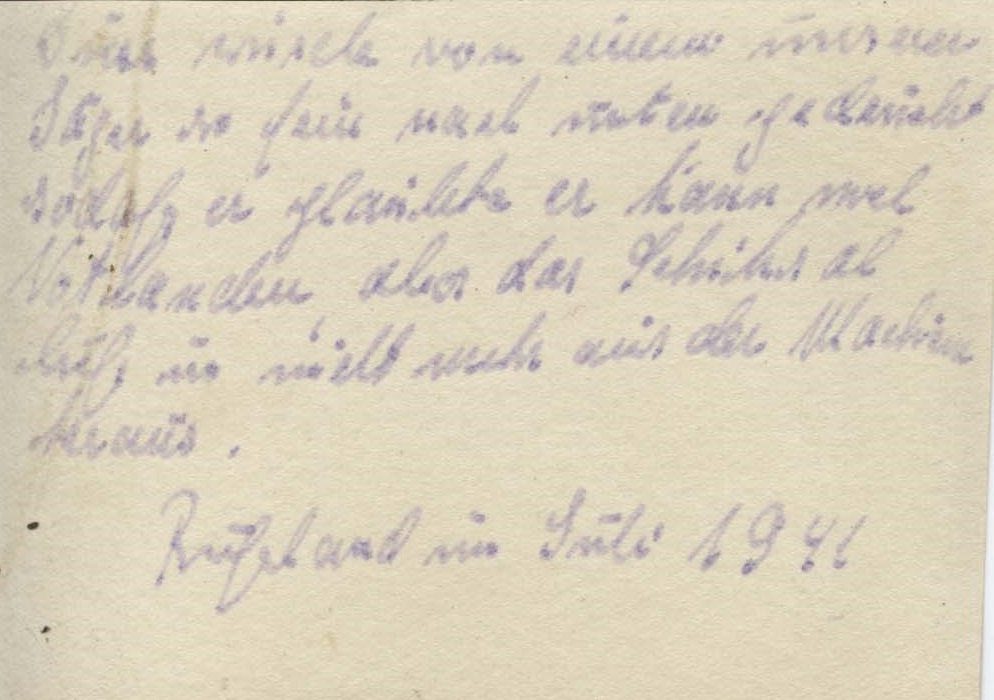 Dieser wurde von einem unserer
Jäger so fein nach unten gedrückt
sodaß er glaubte er kann wol
Notlanden, aber das Schiksal
ließ in nicht mehr aus der Maschin
heraus.
Rußland im Juli 1941